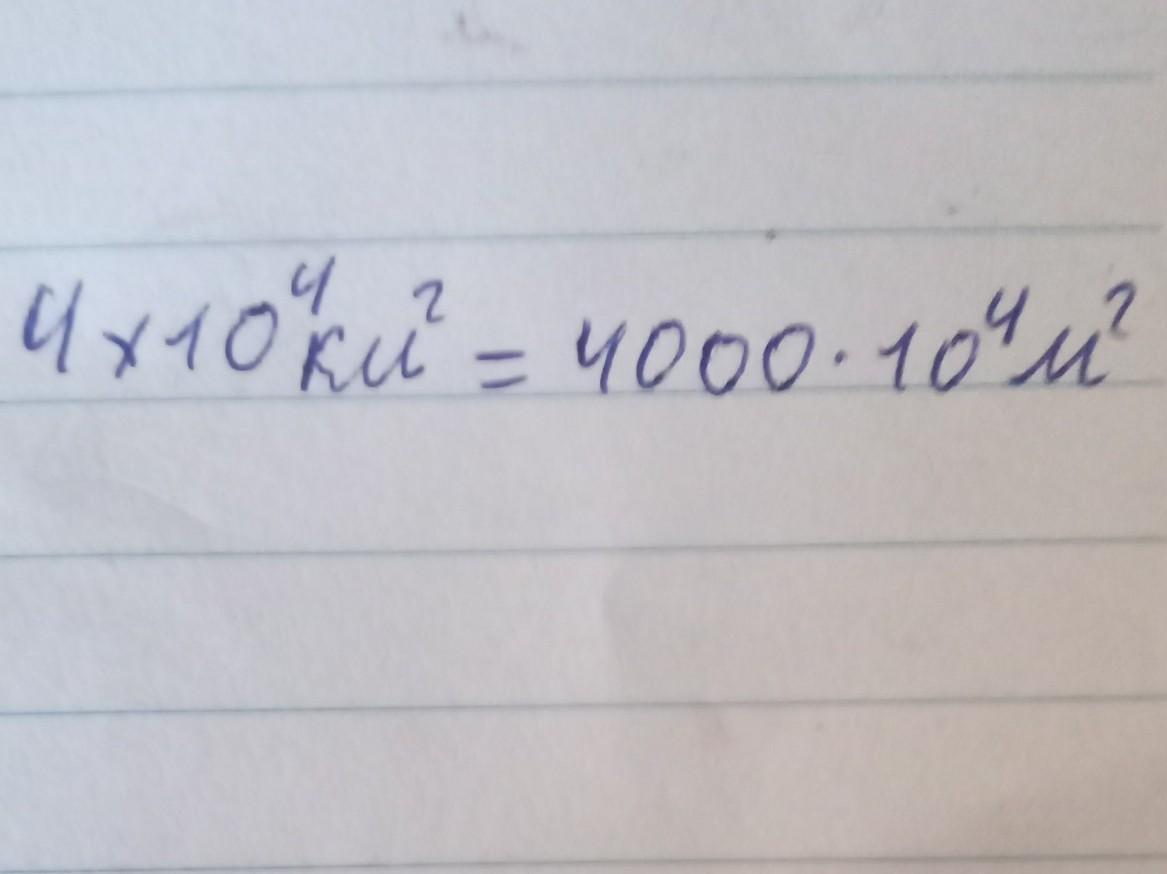 4×10⁴км² = 4000·10⁴м²